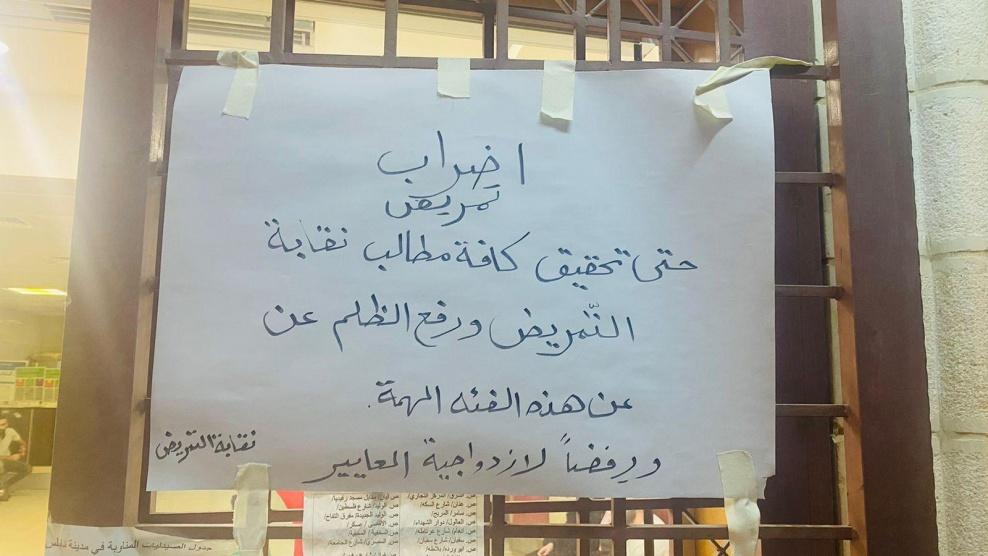 اضراب
تمريض
حتى تحقيق كافة مطالب نقابة
التّمريض ورفع الظلم عن
عن هذه الفئه المهمة.
ورفضاً لازدواجية المعايير
نقابة التمريض
جدول الصيدليات المناوبة في مدينة نابلس